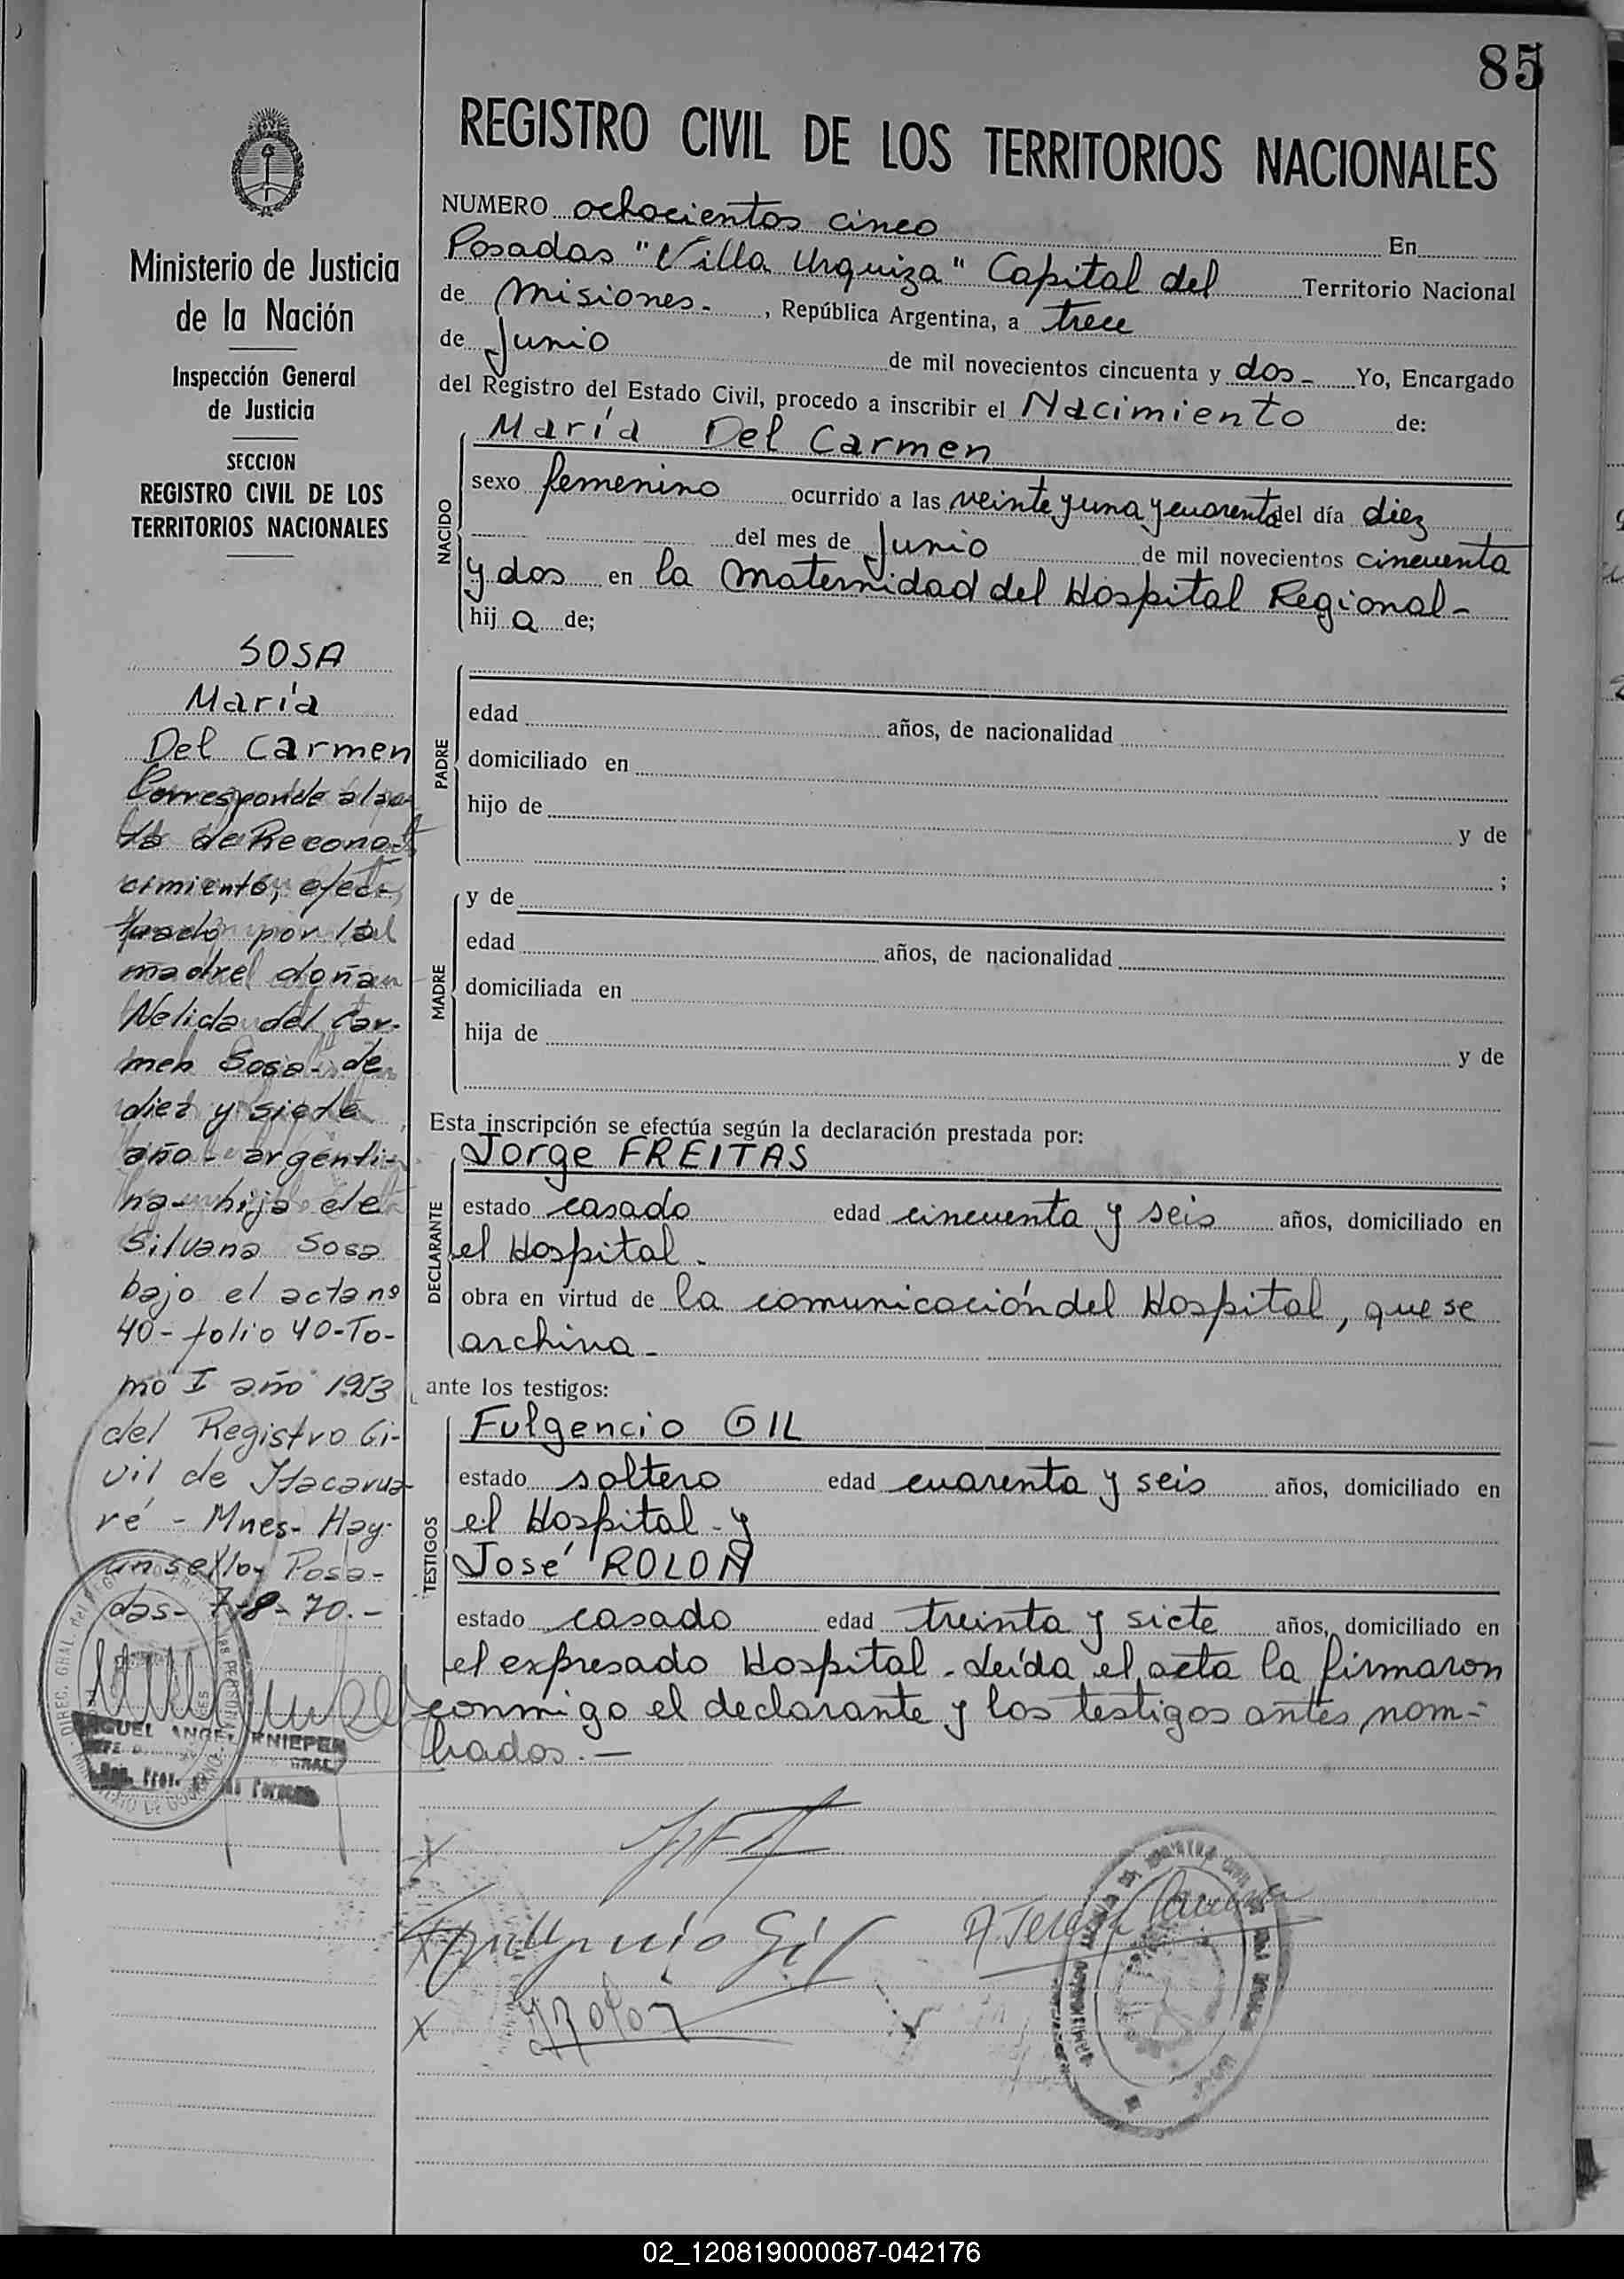 85
REGISTRO CIVIL DE LOS TERRITORIOS NACIONALES
Ministerio de Justicia
de la Nación
Inspección General
de Justicia
SECCION
REGISTRO CIVIL DE LOS
TERRITORIOS NACIONALES
SOSA
María
Del Carmen
Corresponde al ac-
ta de Recono-
cimiento, efec-
tuado por la
madre doña
Nelida del Car-
men Sosa- de
diez y siete
año- argenti-
na- hija de
Silvana Sosa
bajo el acta nº
40- folio 40- To-
mo I año 1953
del Registro Ci-
vil de Itacarua-
ré - Mnes- Hay
un sello- Posa-
das- 7-8-70.-
NUMERO ochocientos cinco En
Posadas "Villa Urquiza" Capital del Territorio Nacional
de Misiones- , República Argentina, a trece
de Junio de mil novecientos cincuenta y dos- Yo, Encargado
del Registro del Estado Civil, procedo a inscribir el Nacimiento de:
NACIDO
María Del Carmen
sexo femenino ocurrido a las veinte y una y cuarenta del día diez
del mes de Junio de mil novecientos cincuenta
y dos en la Maternidad del Hospital Regional-
hij a de;
PADRE
edad años, de nacionalidad
domiciliado en
hijo de y de
;
MADRE
y de
edad años, de nacionalidad
domiciliada en
hija de y de
Esta inscripción se efectúa según la declaración prestada por:
DECLARANTE
Jorge FREITAS
estado casado edad cincuenta y seis años, domiciliado en
el Hospital-
obra en virtud de la comunicación del Hospital, que se
archiva-
ante los testigos:
TESTIGOS
Fulgencio GIL
estado soltero edad cuarenta y seis años, domiciliado en
el Hospital- y
José ROLON
estado casado edad treinta y siete años, domiciliado en
el expresado Hospital- Leída el acta la firmaron
conmigo el declarante y los testigos antes nom-
brados.-
Fulgencio Gil
JRolon
02_120819000087-042176